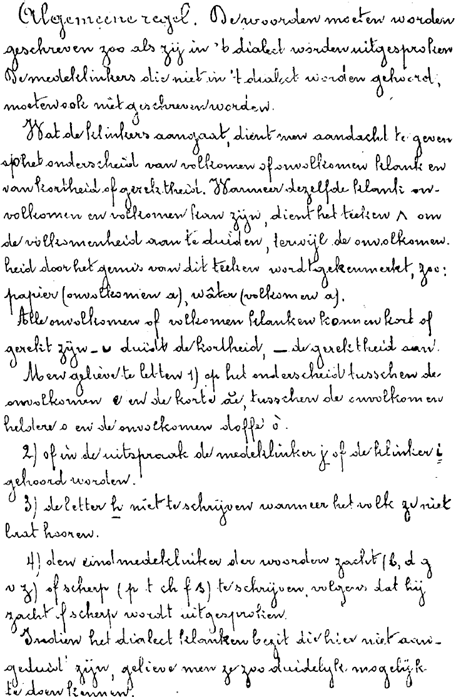 Algemeene regel. De woorden moeten worden
geschreven zoo als zij in 't dialect worden uitgesproken
De medeklinkers die niet in 't dialect worden gehoord,
moeten ook niet geschreven worden.
Wat de klinkers aangaat, dient men aandacht te geven
op het onderscheid van volkomen of onvolkomen klank en
van kortheid of gerektheid. Wanneer dezelfde klank on-
volkomen en volkomen kan zijn, dient het teeken ʌ om
de volkomenheid aan te duiden, terwijl de onvolkomen-
heid door het gemis van dit teeken wordt gekenmerkt, zoo:
papier (onvolkomen a), wâter (volkomen a).
Alle onvolkomen of volkomen klanken konnen kort of
gerekt zijn - ᴗ duidt de kortheid, — de gerektheid aan.
Men gelieve te letten 1) op het onderscheid tusschen de
onvolkomen e en de korte , tusschen de onvolkomen
heldere o en de onvolkomen doffe ò.
2) of in de uitspraak de medeklinker j of de klinker i
gehoord worden.
3) de letter h niet te schrijven wanneer het volk ze niet
laat hooren.
4) den eindmedeklinker der woorden zacht (b, d g
v z) of scherp (p t ch f s) te schrijven, volgens dat hij
zacht of scherp wordt uitgesproken.
Indien het dialect klanken bezit die hier niet aan-
geduid zijn, gelieve men ze zoo duidelijk mogelijk
te doen kennen.